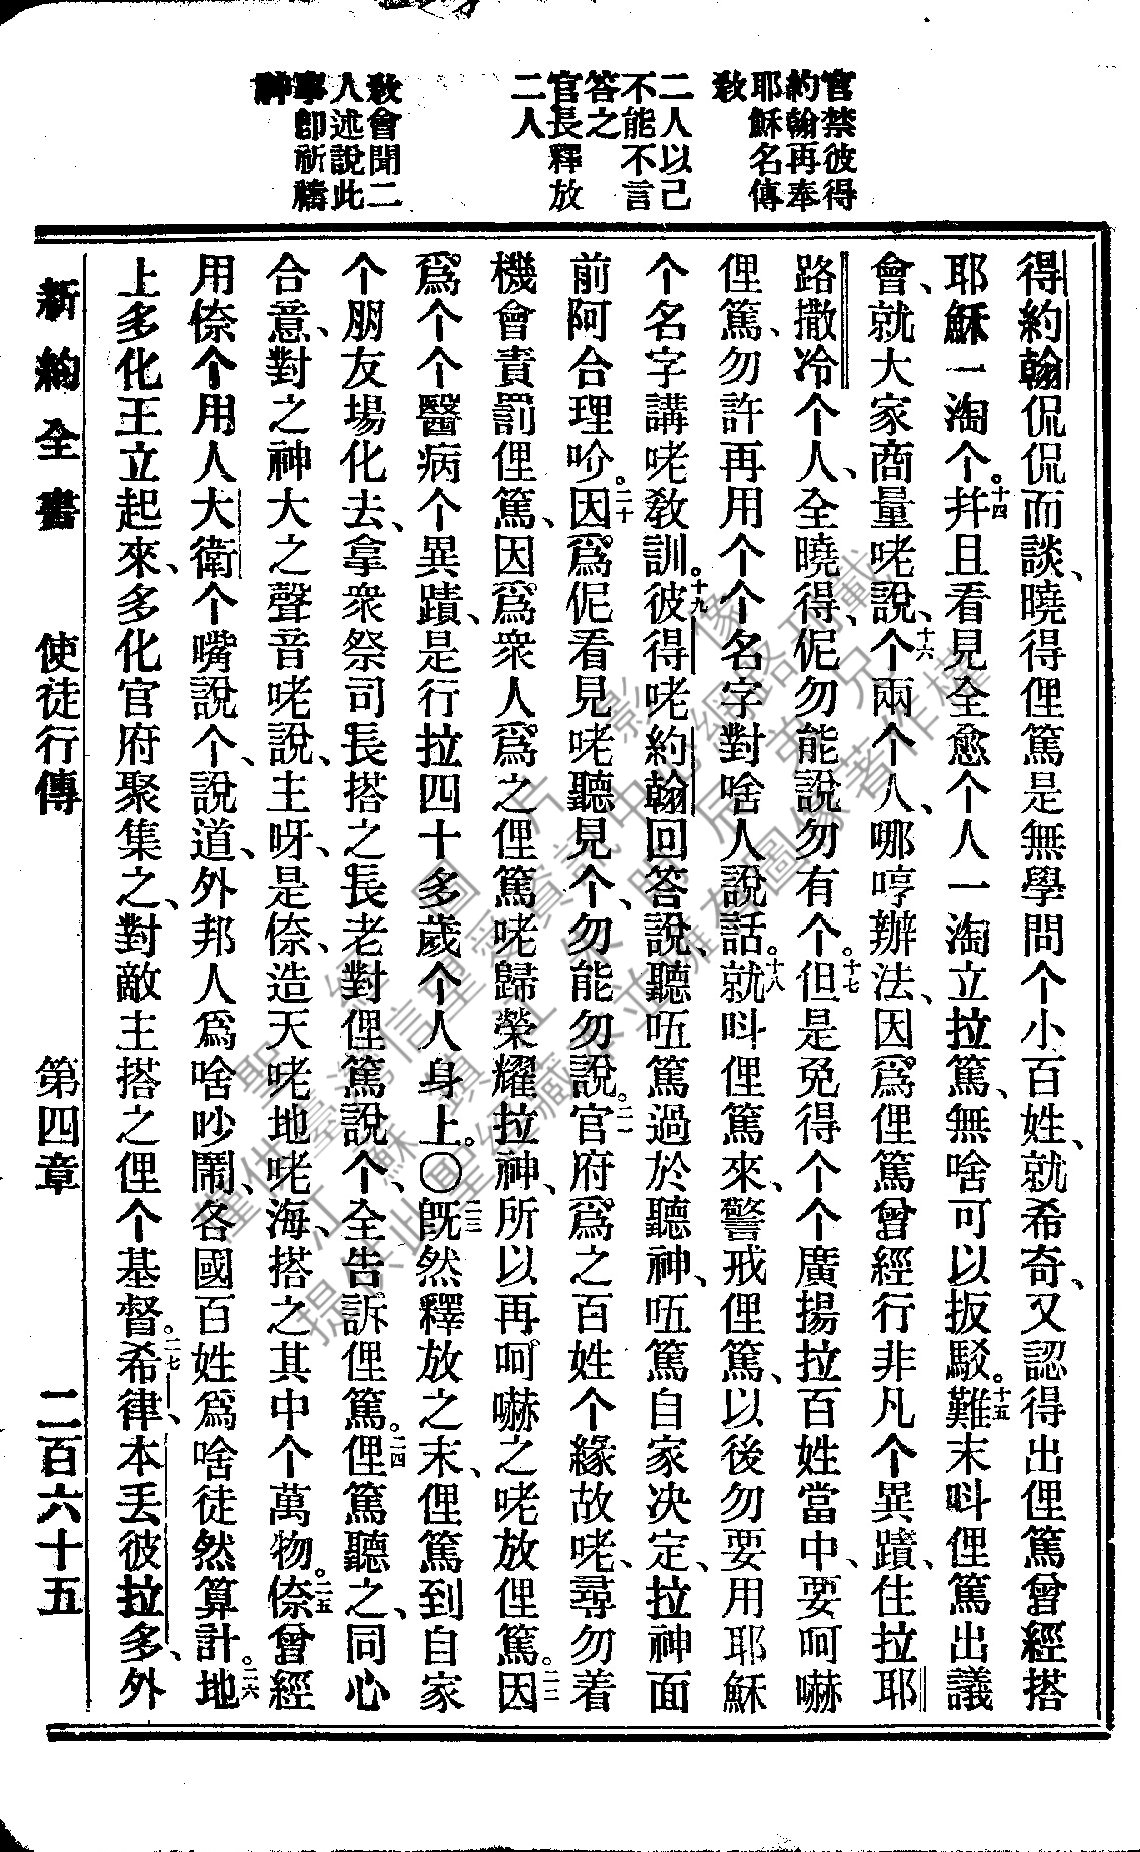 官禁彼得
約翰再奉
耶穌名傳
教
二人以己
不能不言
答之
官長釋放
二人
教會聞二
人述說此
事卽祈禱
神
得約翰侃侃而談、曉得俚篤是無學問个小百姓、就希奇、又認得出俚篤曾經搭
耶穌一淘个。十四幷且看見全愈个人一淘立拉篤、無啥可以扳駁。十五難末呌俚篤出議
會、就大家商量咾說、十六个兩个人、哪哼辦法、因爲俚篤曾經行非凡个異蹟、住拉耶
路撒冷个人、全曉得、伲勿能說勿有个。十七但是免得个个廣揚拉百姓當中、要呵嚇
俚篤、勿許再用个个名字對啥人說話。十八就呌俚篤來、警戒俚篤、以後勿要用耶穌
个名字講咾敎訓。十九彼得咾約翰回答說、聽㕶篤過於聽神、㕶篤自家决定、拉神面
前阿合理吤。二十因爲伲看見咾聽見个、勿能勿說。二一官府爲之百姓个緣故咾、尋勿着
機會責罰俚篤、因爲衆人爲之俚篤咾歸榮耀拉神、所以再呵嚇之咾放俚篤。二二因
爲个个醫病个異蹟、是行拉四十多歲个人身上。〇二三旣然釋放之末、俚篤到自家
个朋友場化去、拿衆祭司長搭之長老對俚篤說个、全告訴俚篤。二四俚篤聽之、同心
合意、對之神大之聲音咾說、主呀、是倷、造天咾地咾海、搭之其中个萬物。二五倷曾經
用倷个用人大衛个嘴說个、說道、外邦人爲啥吵鬧、各國百姓爲啥徒然算計。二六地
上多化王立起來、多化官府聚集之、對敵主搭之俚个基督。二七希律、本丟彼拉多、外
新約全書 使徒行傳 第四章 二百六十五
聖經圖片影像
僅供臺灣信望愛資訊中心網路刊載
江蘇鎮江朱明辰弟兄
提供此聖經藏本並擁有圖像著作權